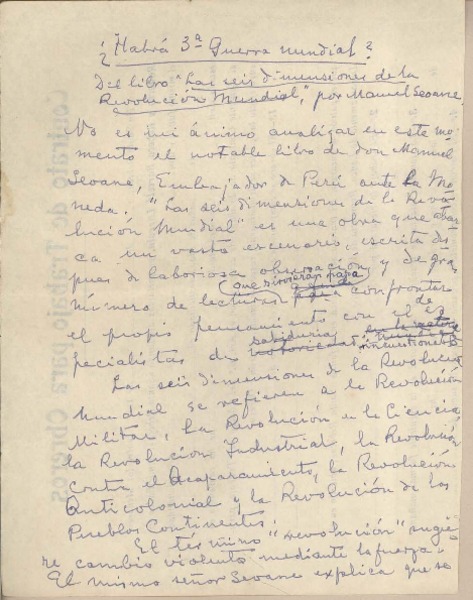 ¿Habrá 3ª Guerra mundial?
Del libro "Las seis dimensiones de la
Revolución Mundial", por Manuel Seoane
No es mi ánimo analizar en este mo-
mento el notable libro de don Manuel
Seoane, Embajador de Perú ante la Mo-
neda. "Las seis dimensiones de la Revo-
lución Mundial" es una obra que abar-
ca un vasto escenario, escrita des-
pues de laboriosa observación y de gran
que sirvieran para
número de lecturas confrontar
el propio pensamiento con el de es
pecialistas de sabiduría
incuestionable
Las seis dimensiones de la Revolución
Mundial se refieren a la Revolución
Militar, la Revolución en la Ciencia,
la Revolución Industrial, la Revolución
contra el Acaparamiento, la Revolución
Anticolonial y la Revolución de los
Pueblos Continentes.
El término "revolución" sugie-
re cambio violento mediante la fuerza.
El mismo señor Seoane explica que se
Contrato de Trabajo para Obreros